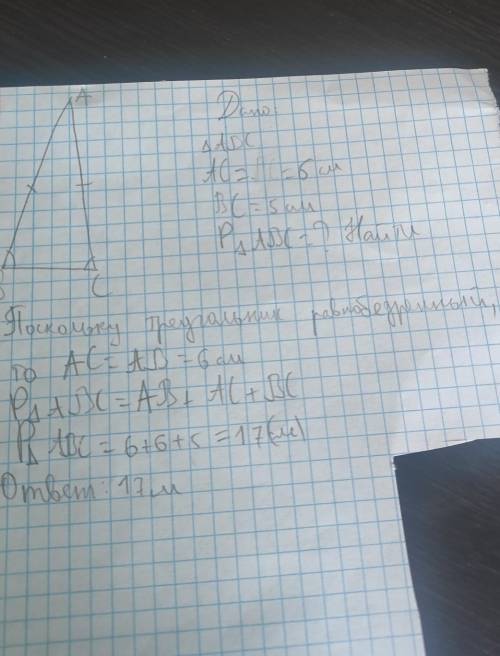 A
C
Дано:
△ABC
AC = = 6 см
BC = 5 см
P△ABC = ? Найти
Поскольку треугольник равнобедренный,
то AC = AB = 6 см
P△ABC = AB + AC + BC
P△ABC = 6+6+5 = 17(м)
Ответ: 17м